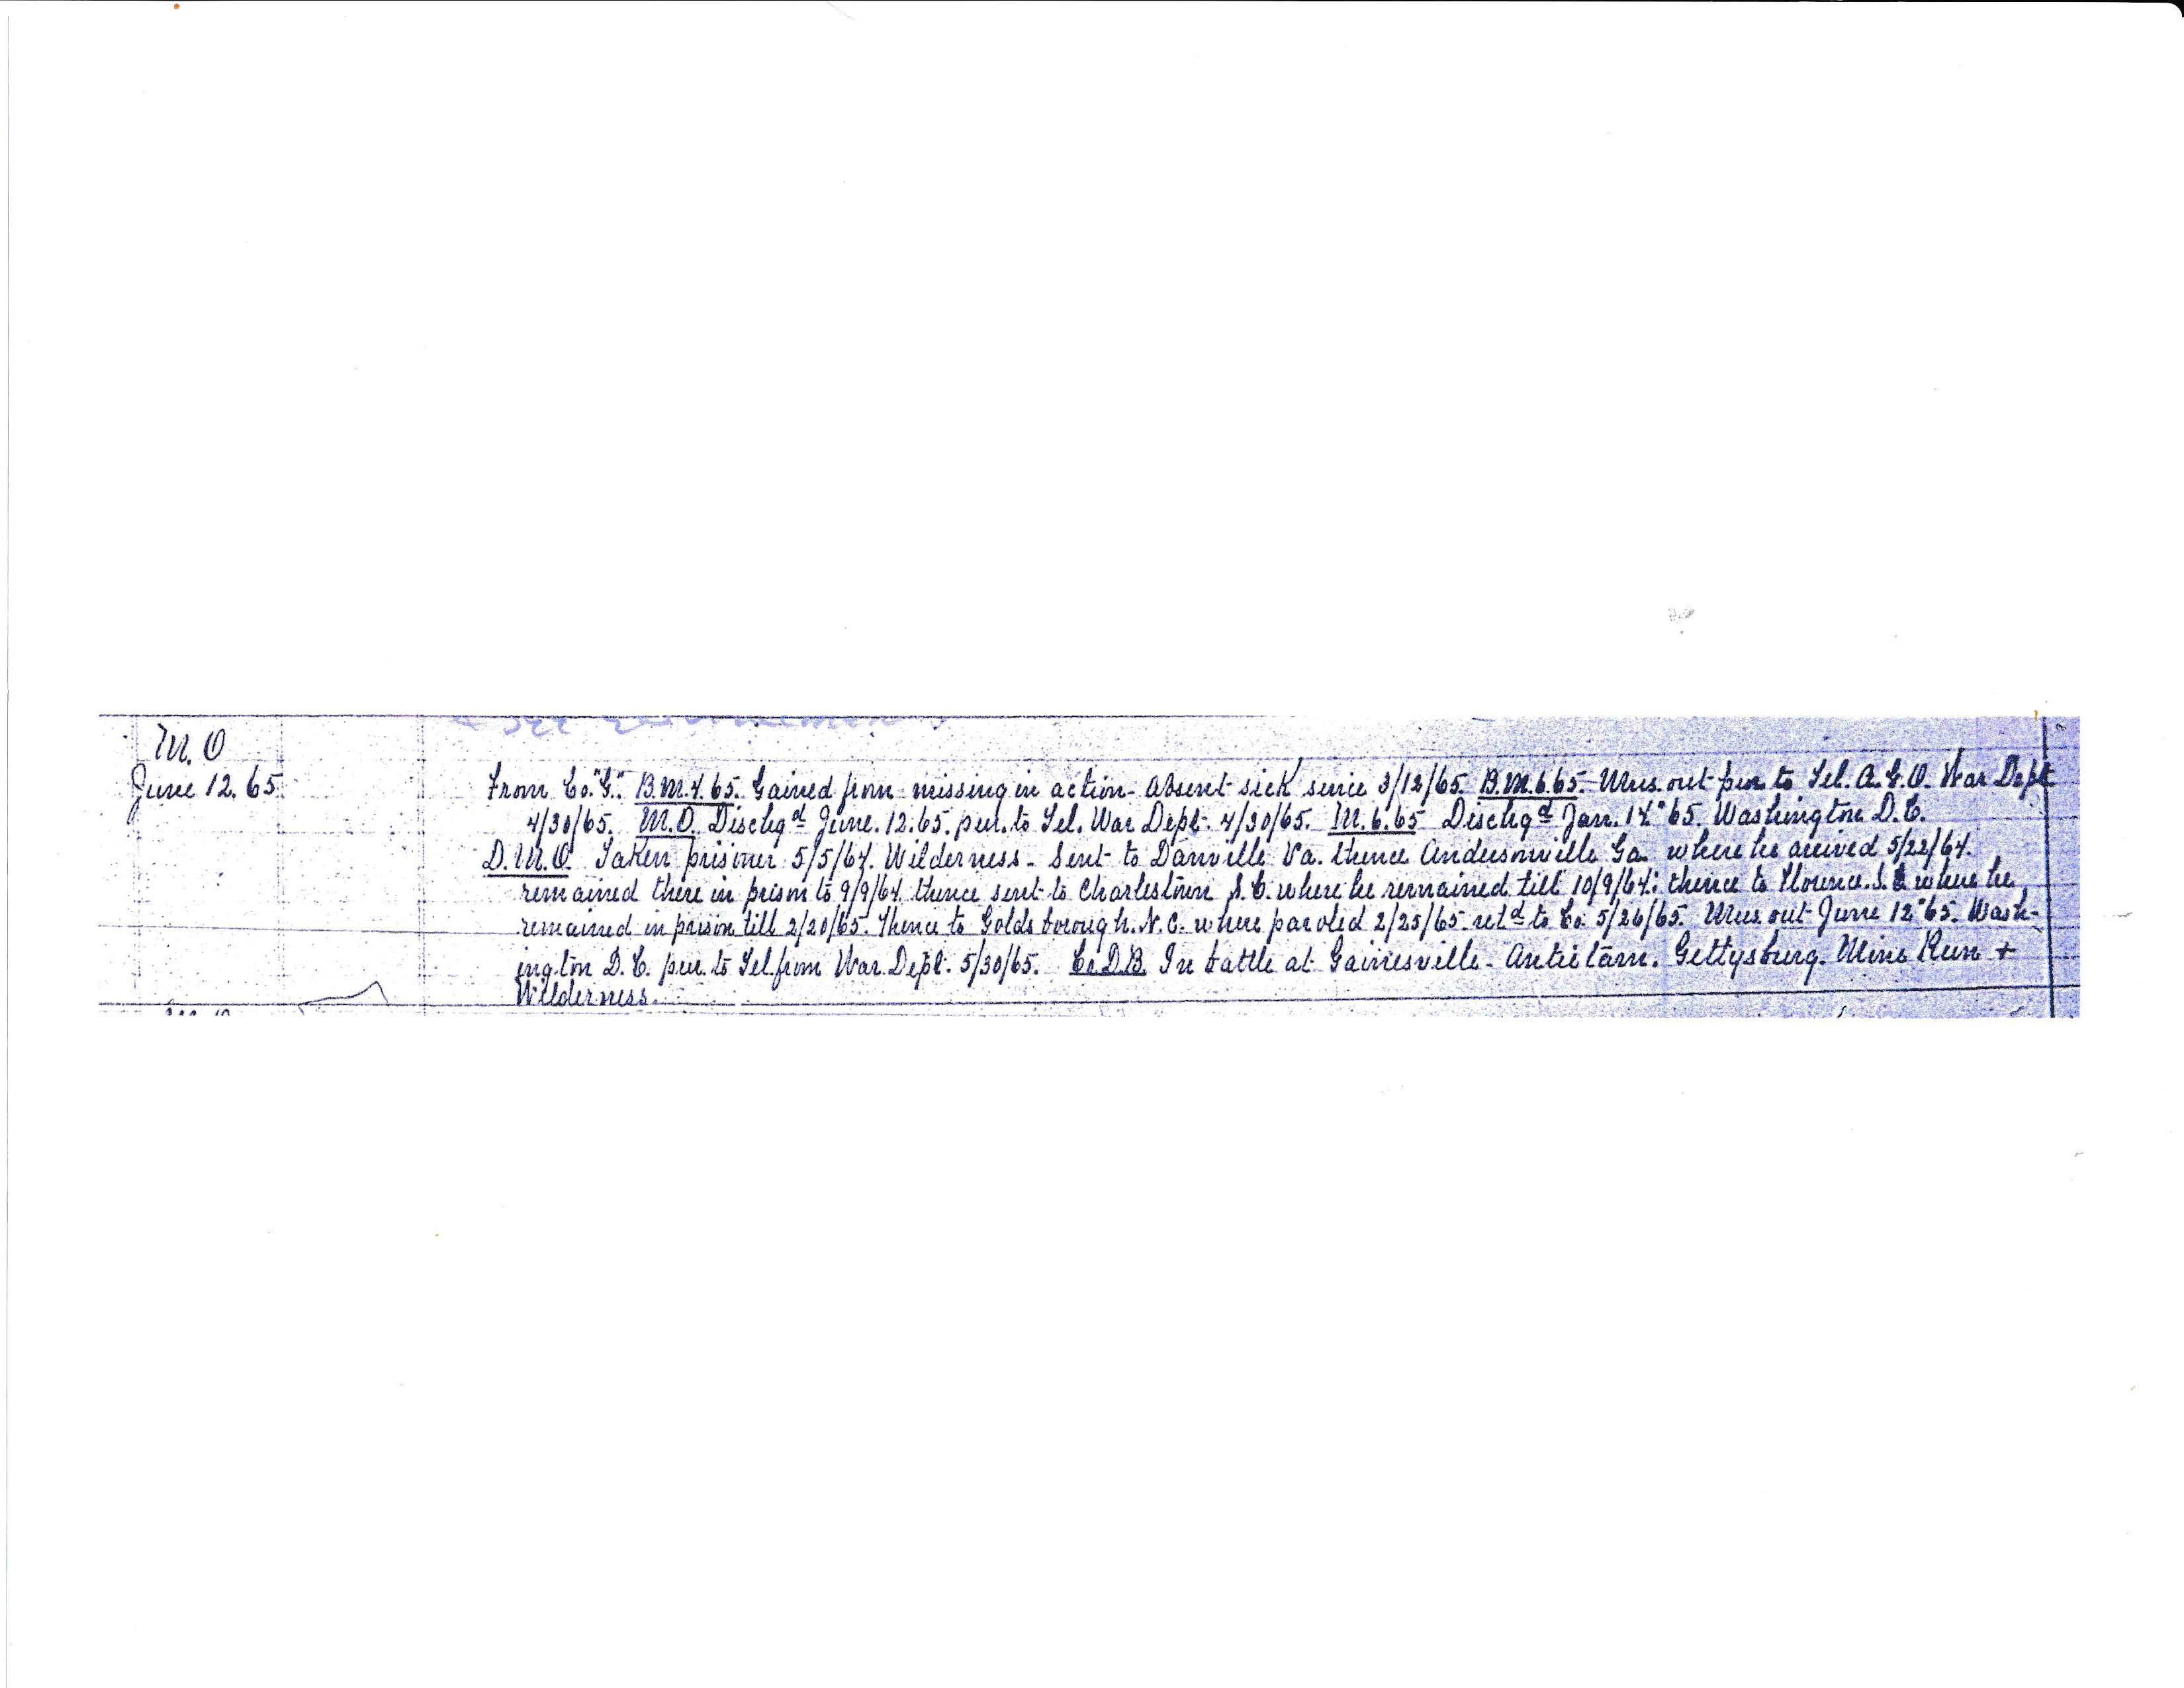 M. O
June 12. 65.
From Co. "G". B.M.4.65. Gained from missing in action - absent sick since 3/12/65. B.M.6.65. Mus. out pur to Tel. A.G.O. War Dept
4/30/65. M.O. Dischgd June. 12. 65. pur. to Tel. War Dept. 4/30/65. M.6.65 Dischgd Jan. 14" 65. Washington D.C.
D.M.O. Taken prisoner 5/5/64. Wilderness - Sent to Danville Va. thence Andersonville Ga. where he arrived 5/22/64.
remained there in prison to 9/9/64. thence sent to Charlestown S.C. where he remained till 10/9/64: thence to Florence. S.C where he
remained in prison till 2/20/65. Thence to Goldsborough. N.C. where paroled 2/25/65 retd to Co. 5/26/65. Mus. out June 12" 65. Wash-
ington D.C. pur. to Tel. from War. Dept. 5/30/65. Co.D.B. In battle at Gainesville - Antietam. Gettysburg. Mine Run +
Wilderness.